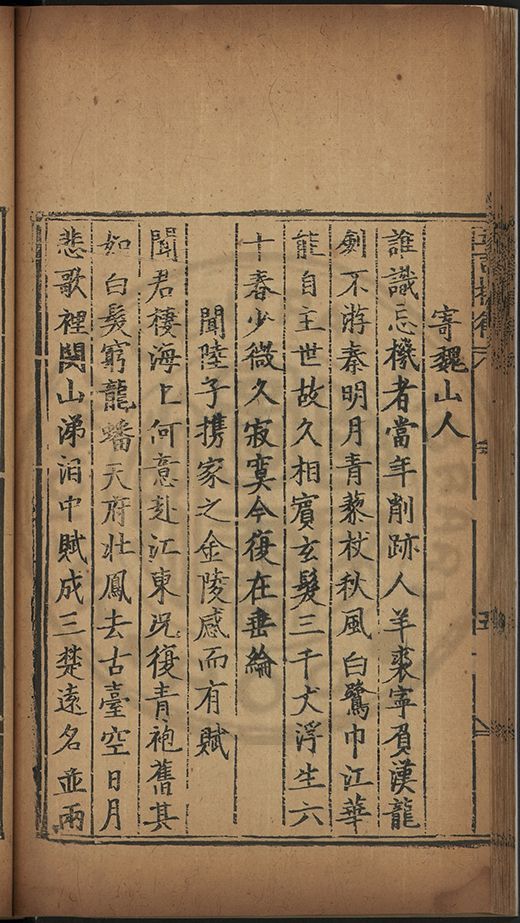 寄魏山人
誰識忘機者當年削跡人羊裘寧負漢龍
劍不游秦明月青藜杖秋風白鷺巾江華
能自主世故久相賓玄髮三千丈浮生六
十春少微久寂寞今復在垂綸
聞陸子攜家之金陵感而有賦
聞君棲海上何意赴江東況復青袍舊其
如白髮窮龍蟠天府壯鳳去古臺空日月
悲歌裡関山涕泪中賦成三楚遠名並兩